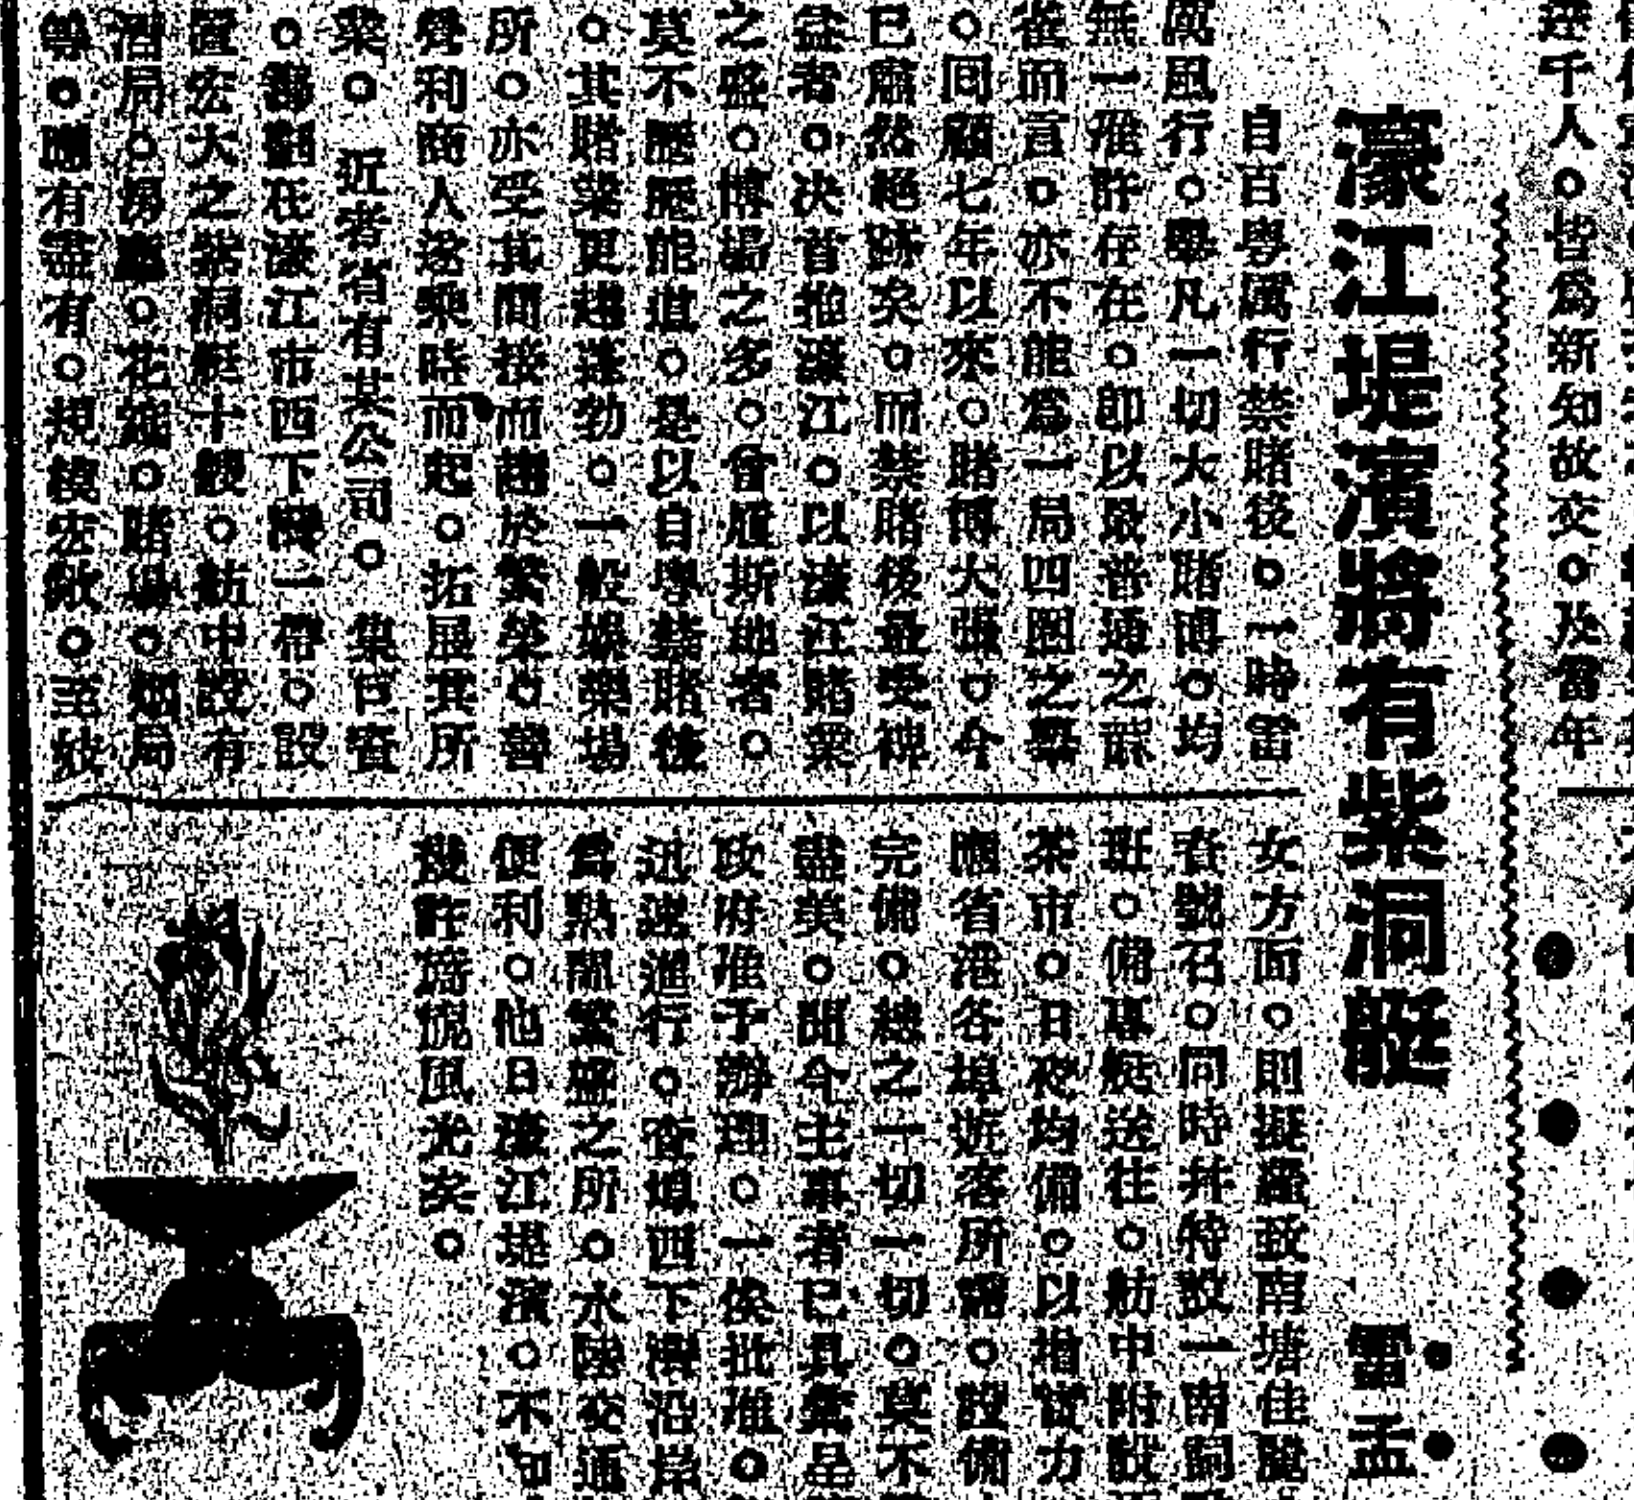 濠江堤濱將有紫洞艇
雷孟
自百粵厲行禁賭後。一時雷
厲風行。舉凡一切大小賭博。均
無一准許存在。即以最普通之麻
雀而言。亦不能爲一局四圈之舉
。囘顧七年以來。賭博大張。今
已肅然絕跡矣。而禁賭後最受裨
益者。决首推濠江。以濠江賭業
之盛。博場之多。曾履斯地者。
莫不歷歷能道。是以自粵禁賭後
。其賭業更趨蓬勃。一般娛樂場
所。亦受其間接而趨於繁榮。醫
聲利商人遂乘時而起。拓展其所
業。近者省有某公司。集巨資
。籌劃在濠江市西下環一帶。設
置宏大之紫洞艇十艘。舫中設有
酒局。舞廳。花筵。賭場。烟局
等。應有盡有。規模宏敞。至妓
女方面。則擬羅致南塘佳麗
者號召。同時幷特設一南詞
班。備專艇送往。舫中附設
茶市。日夜均備。以增實力
應省港各埠遊客所需。設備
完備。總之一切一切。莫不
盡美。聞今主事者已具稟呈
政府准予辦理。一俟批准。
迅速進行。查媽西下灣沿岸
爲熱鬧繁盛之所。水陸交通
便利。他日濠江堤濱。不知
幾許旖旎風光矣。
達千人。皆爲新知故交。及當年